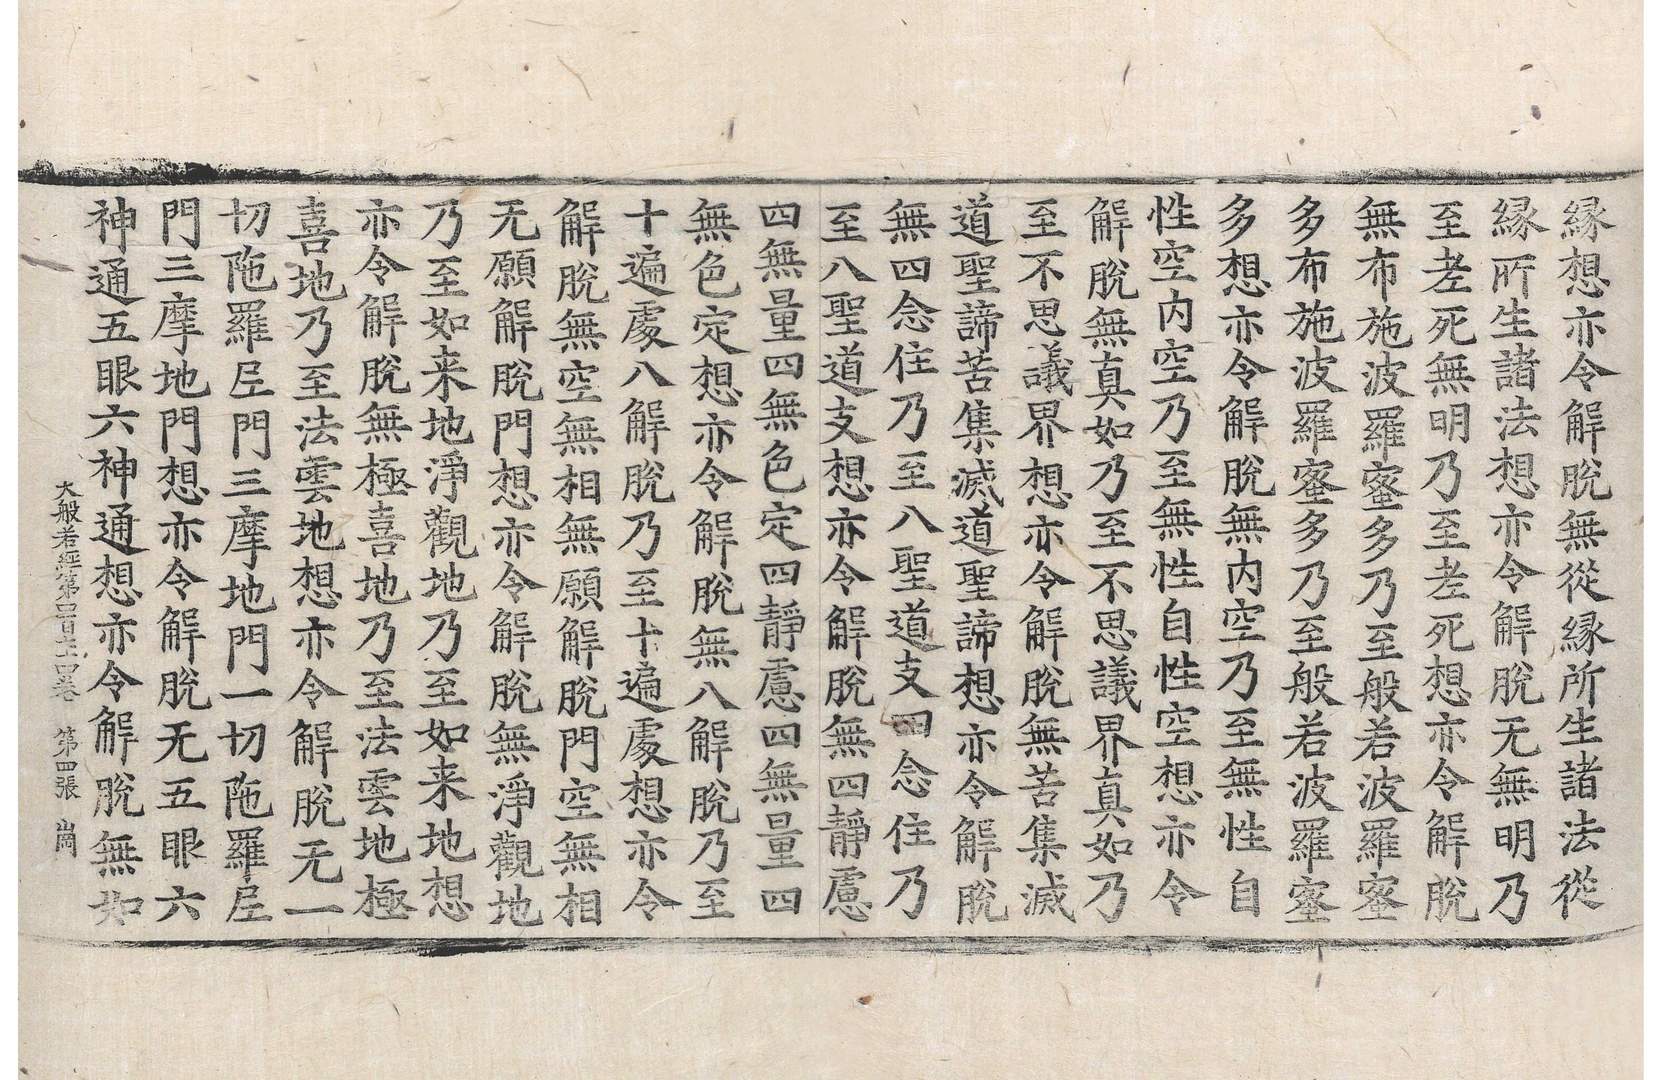 縁想亦令解脫無從縁所生諸法從
縁所生諸法想亦令解脫无無明乃
至老死無明乃至老死想亦令解脫
無布施波羅蜜多乃至般若波羅蜜
多布施波羅蜜多乃至般若波羅蜜
多想亦令解脫無内空乃至無性自
性空内空乃至無性自性空想亦令
解脫無真如乃至不思議界真如乃
至不思議界想亦令解脫無苦集滅
道聖諦苦集滅道聖諦想亦令解脫
無四念住乃至八聖道支四念住乃
至八聖道支想亦令解脫無四靜慮
四無量四無色定四靜慮四無量四
無色定想亦令解脫無八解脫乃至
十遍處八解脫乃至十遍處想亦令
解脫無空無相無願解脫門空無相
无願解脫門想亦令解脫無淨觀地
乃至如来地淨觀地乃至如来地想
亦令解脫無極喜地乃至法雲地極
喜地乃至法雲地想亦令解脫无一
切陁羅尼門三摩地門一切陁羅尼
門三摩地門想亦令解脫无五眼六
神通五眼六神通想亦令解脫無如
大般若經第 四卷 第四張 崗